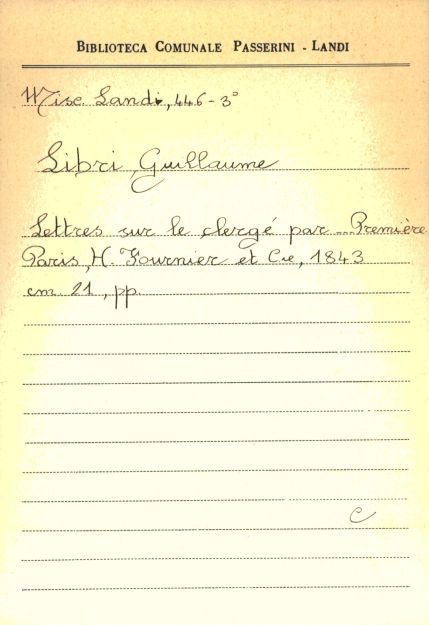 BIBLIOTECA COMUNALE PASSERINI - LANDI
Misc. Landi, 446-3°
Libri, Guillaume
Lettres sur le clergé par ... Première
Paris, H. Fournier et Cie, 1843
cm. 21, pp.
C